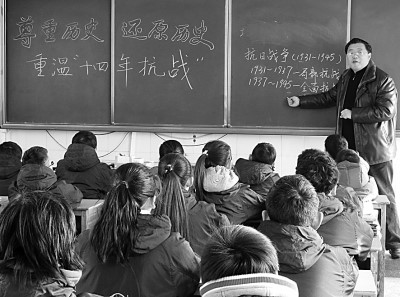 尊重历史 还原历史
重温"十四年抗战"
抗日战争(1931-1945)
1931-1937-局部抗
1937-1945-全面抗